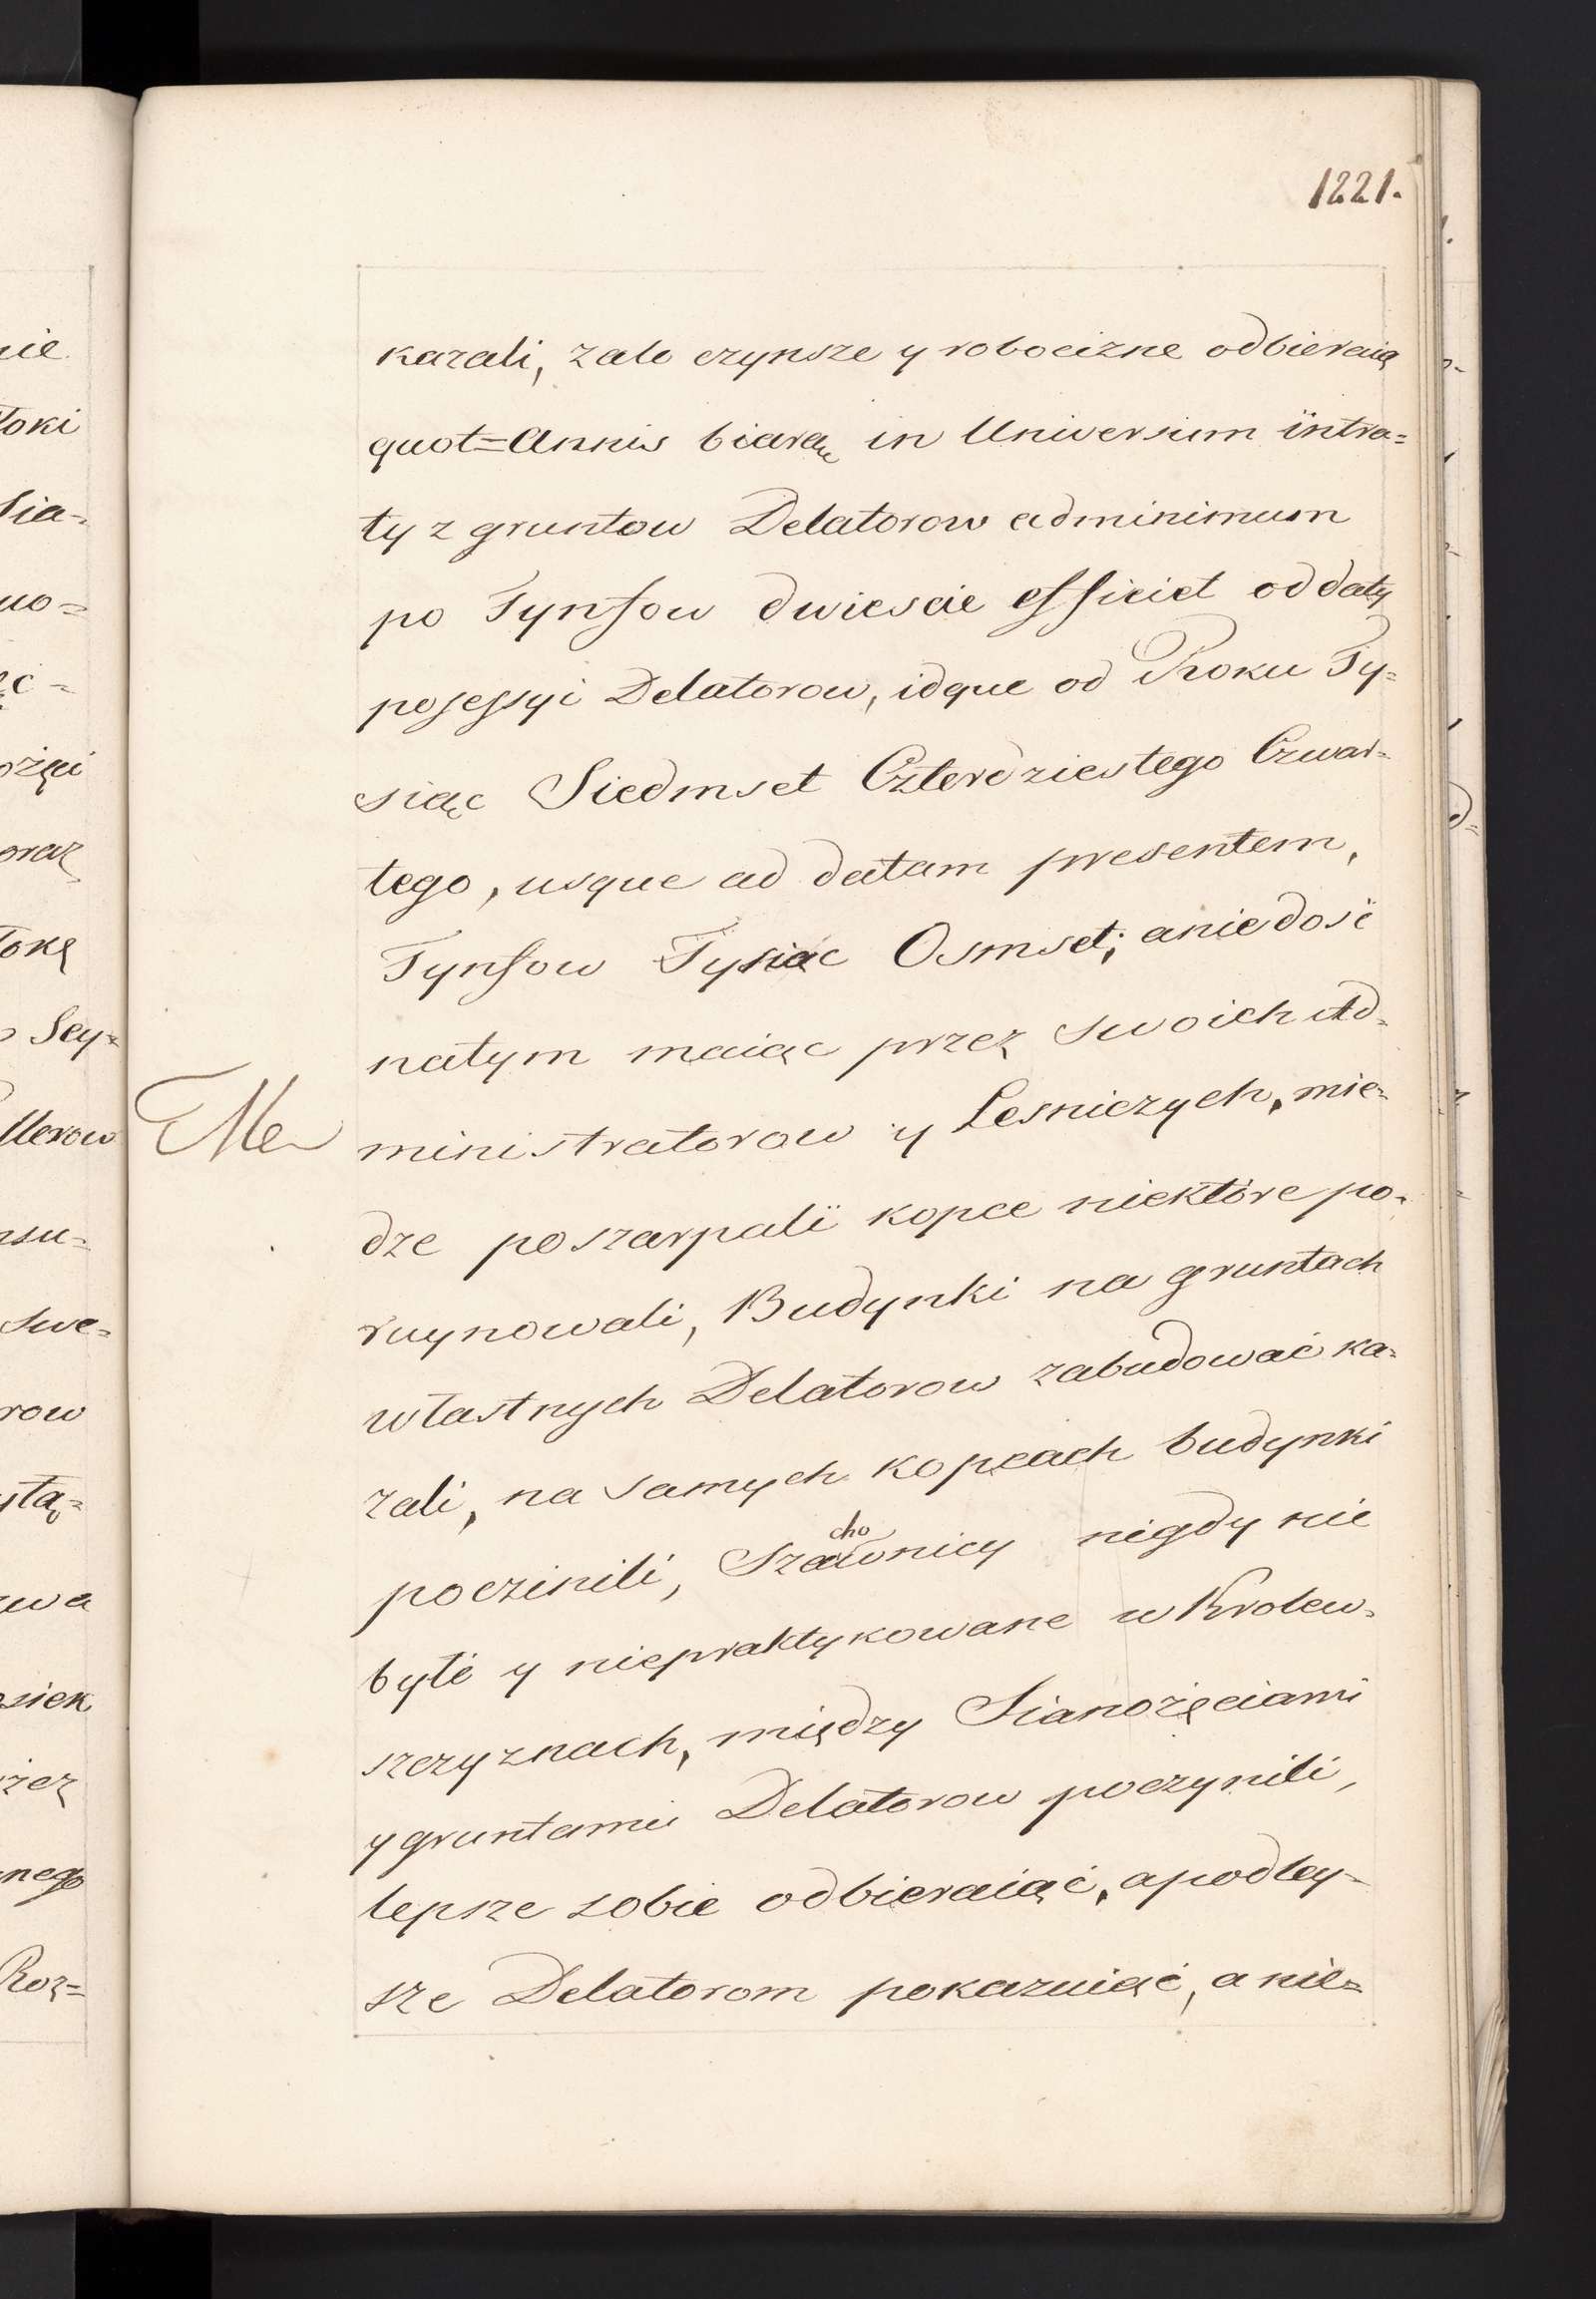 1221.
kazali, zato czynsze y robocizne odbieraią
quot=Annis biorą in Universum intra=
ty z gruntow Delatorow adminimum
po Tynfow dwiescie efficiet od daty
posessyi Delatorow, idque od Roku Ty=
siąc Siedmset Czterdziestego Czwar=
tego, usque ad datam presentem,
Tynfow Tysiąc Osmset; aniedość
natym maiąc przez swoich Ad=
ministratorow y Lesniczych, mie=
dze poszarpali kopce niektóre po=
ruynowali, Budynki na gruntach
własnych Delatorow zabudować ka=
zali, na samych kopcach budynki
poczinili, Szachownicy nigdy nie
byłé y niepraktykowane w Krolew=
szczyznach, między Sianożęciami
y gruntami Delatorow poczynili,
lepsze sobie odbieraiąć, apodley=
sze Delatorom pokazuiąć, a nie=